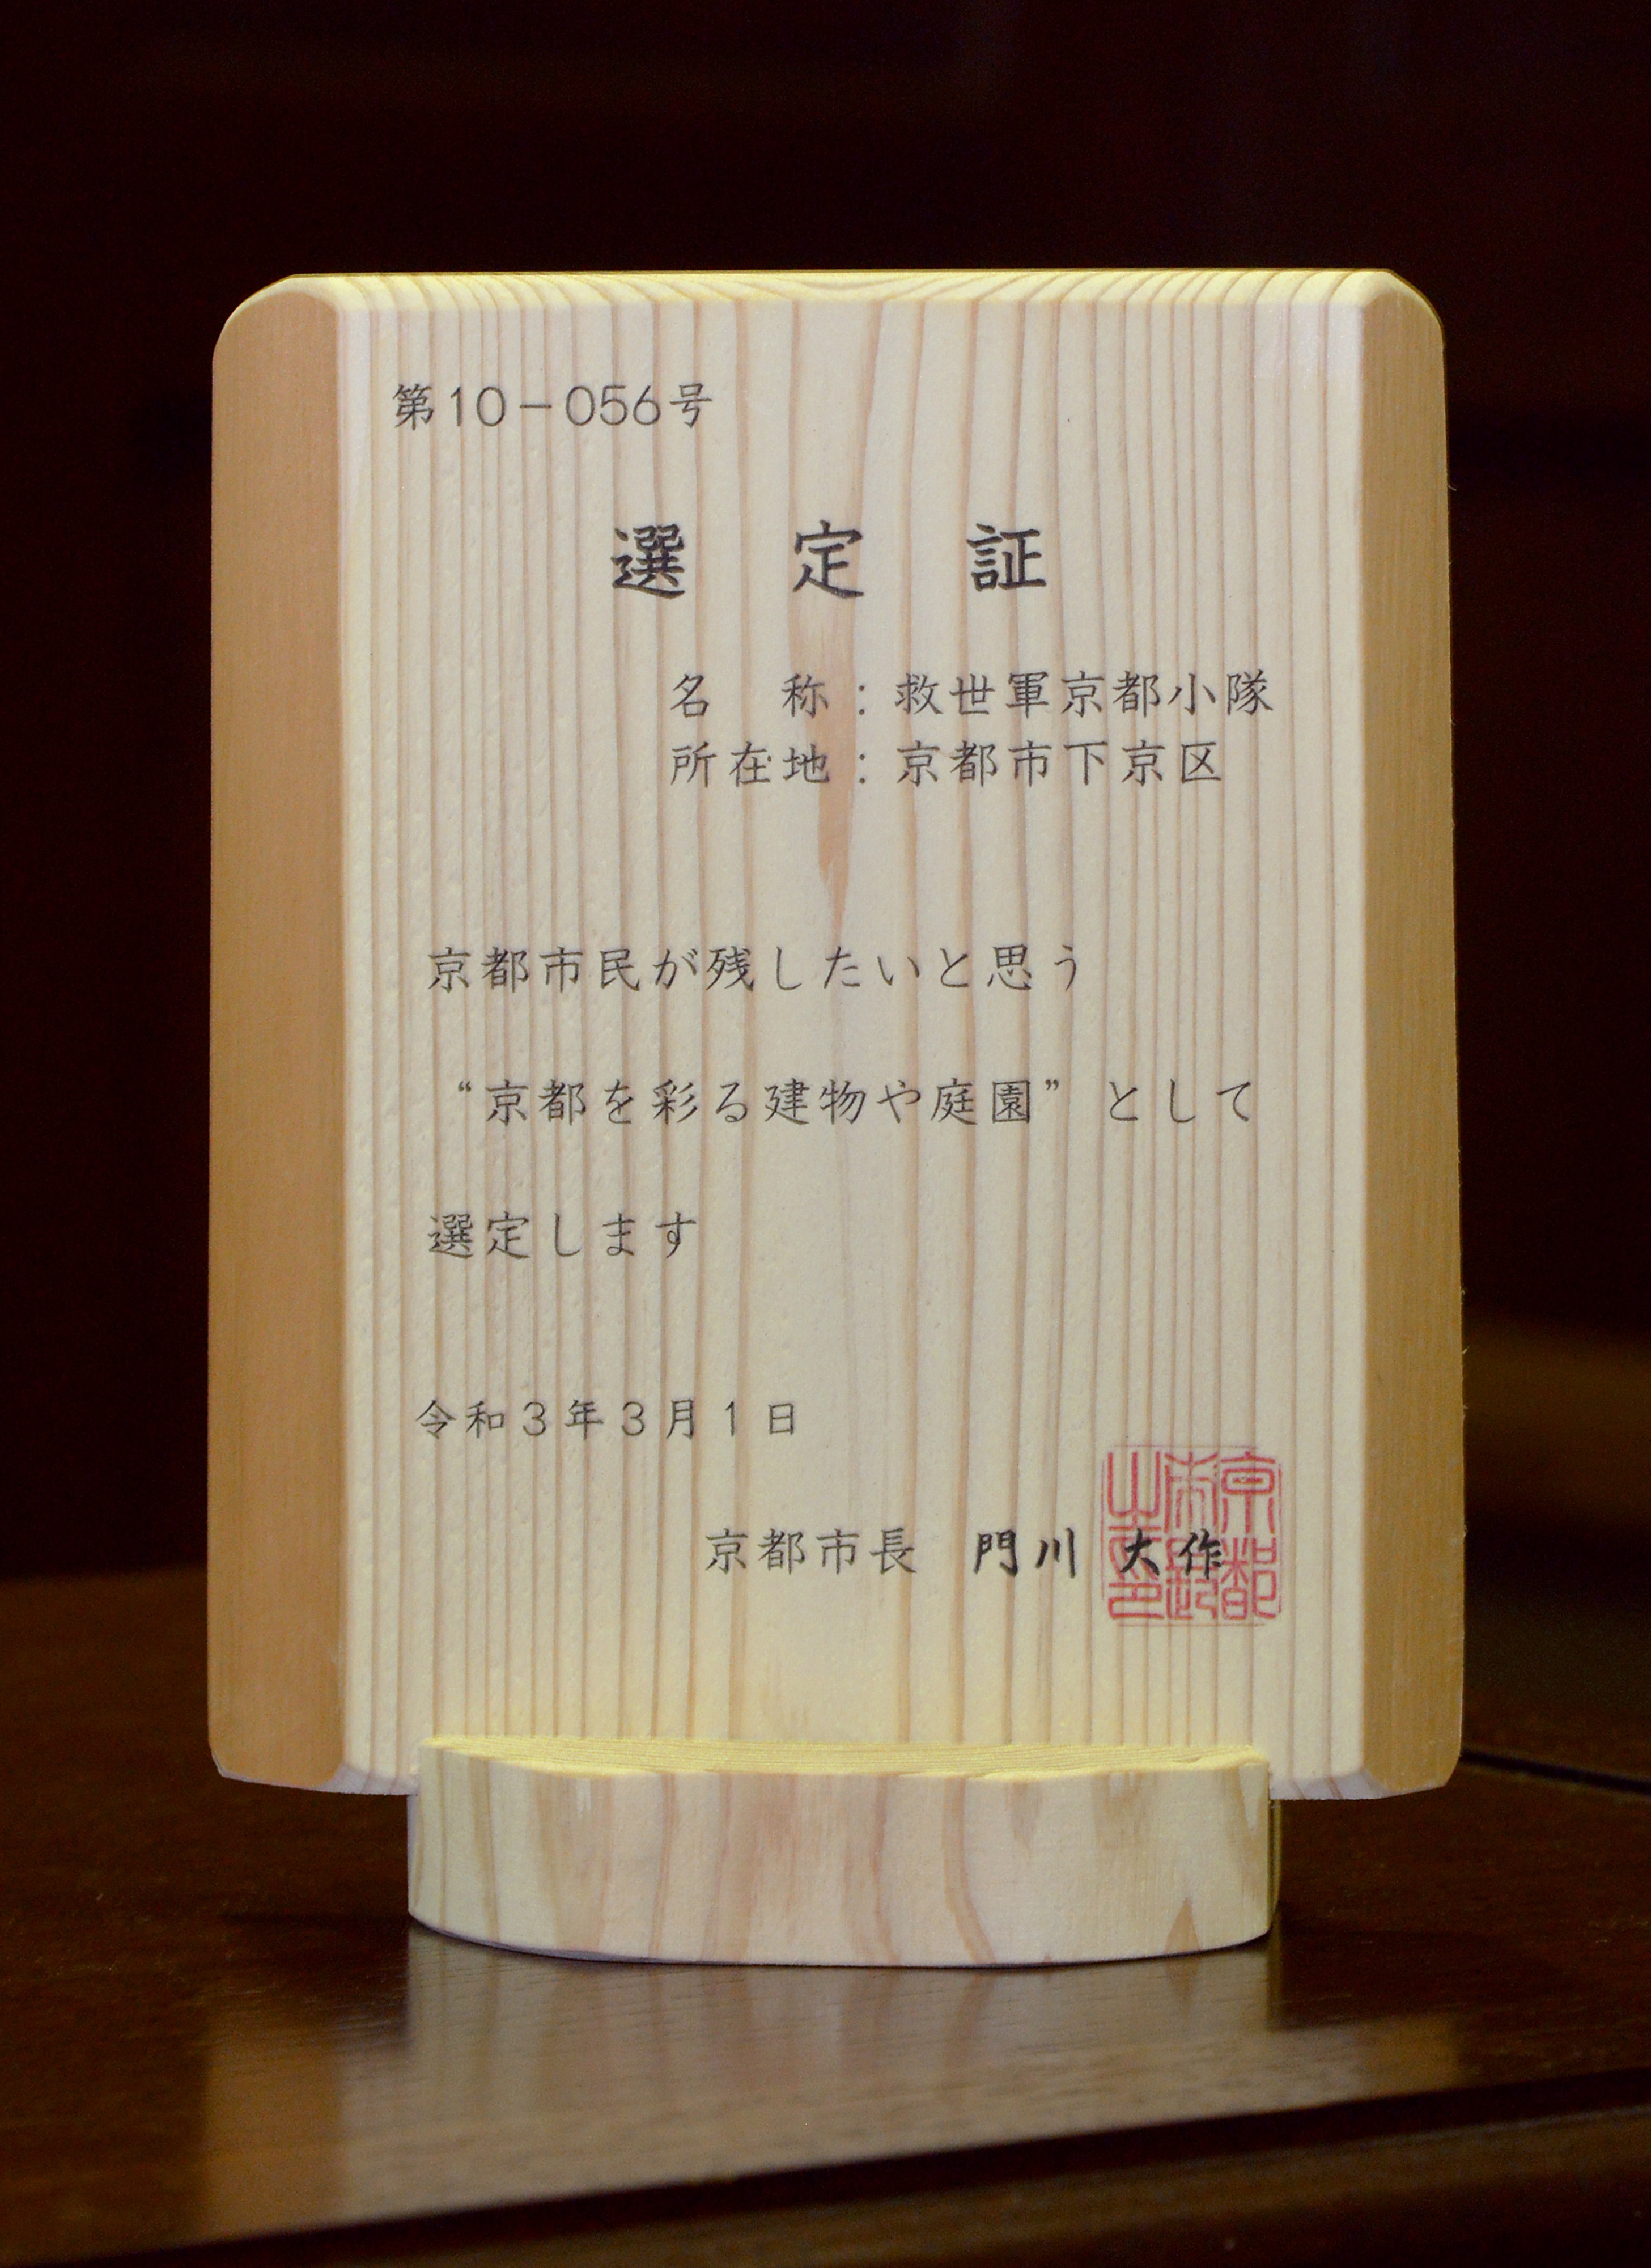 第10－056号
選　定　証
名　称：救世軍京都小隊
所在地：京都市下京区
京都市民が残したいと思う
“京都を彩る建物や庭園” として
選定します
令和３年３月１日
京都市長　門川 大作